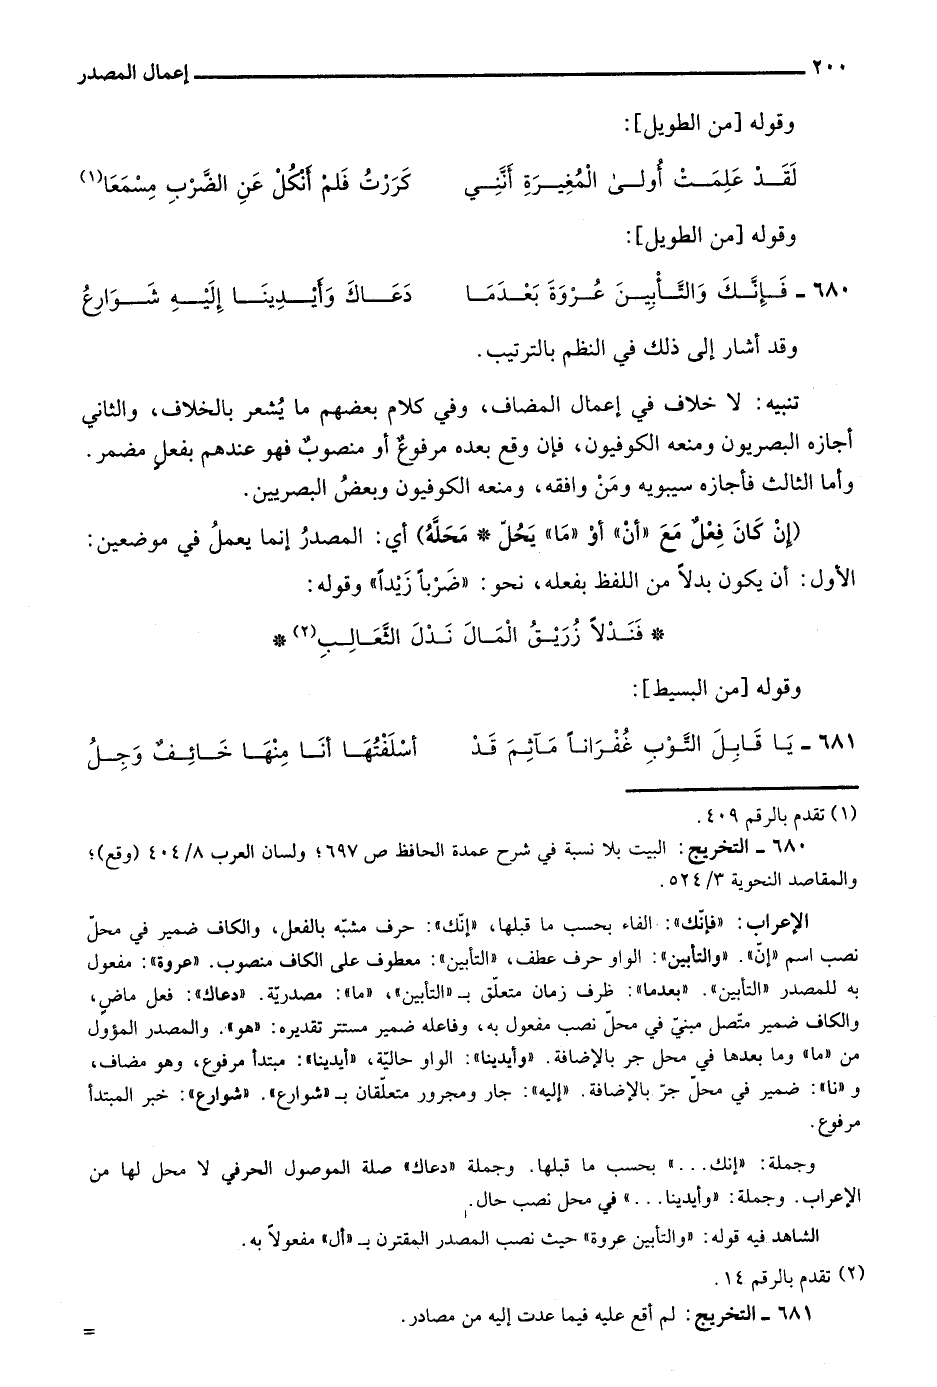 ٢٠٠ إعمال المصدر
وقوله [من الطويل]:
لَقَدْ عَلِمَتْ أُولىٰ الْمُغِيرَةِ أَنَّنِي كَرَرْتُ فَلَمْ أَنْكُلْ عَنِ الضَّرْبِ مِسْمَعَا(١)
وقوله [من الطويل]:
٦٨٠ ـ فَإِنَّكَ وَالتَّأْبِينَ عُرْوَةَ بَعْدَمَا دَعَاكَ وَأَيْدِينَا إِلَيْهِ شَوَارِعُ
وقد أشار إلى ذلك في النظم بالترتيب.
تنبيه: لا خلاف في إعمال المضاف، وفي كلام بعضهم ما يُشعر بالخلاف، والثاني
أجازه البصريون ومنعه الكوفيون، فإن وقع بعده مرفوعٌ أو منصوبٌ فهو عندهم بفعلٍ مضمر.
وأما الثالث فأجازه سيبويه ومَنْ وافقه، ومنعه الكوفيون وبعضُ البصريين.
(إِنْ كَانَ فِعْلٌ مَعَ «أنْ» أوْ «مَا» يَحُلّ * مَحَلَّهُ) أي: المصدرُ إنما يعملُ في موضعين:
الأول: أن يكون بدلاً من اللفظ بفعله، نحو: «ضَرْباً زَيْداً» وقوله:
* فَنَدْلاً زُرَيْقُ الْمَالَ نَدْلَ الثَّعَالِبِ(٢) *
وقوله [من البسيط]:
٦٨١ ـ يَا قَابِلَ التَّوْبِ غُفْرَاناً مَآثِمَ قَدْ أسْلَفْتُهَا أنَا مِنْهَا خَائِفٌ وَجِلُ
(١) تقدم بالرقم ٤٠٩.
٦٨٠ ـ التخريج: البيت بلا نسبة في شرح عمدة الحافظ ص ٦٩٧؛ ولسان العرب ٨/ ٤٠٤ (وقع)؛
والمقاصد النحوية ٣/ ٥٢٤.
الإعراب: «فإنّك»: الفاء بحسب ما قبلها، «إنّك»: حرف مشبّه بالفعل، والكاف ضمير في محلّ
نصب اسم «إنّ». «والتأبين»: الواو حرف عطف، «التأبين»: معطوف على الكاف منصوب. «عروة»: مفعول
به للمصدر «التأبين». «بعدما»: ظرف زمان متعلّق بـ «التأبين»، «ما»: مصدريّة. «دعاك»: فعل ماضٍ،
والكاف ضمير متّصل مبنيّ في محلّ نصب مفعول به، وفاعله ضمير مستتر تقديره: «هو». والمصدر المؤول
من «ما» وما بعدها في محل جر بالإضافة. «وأيدينا»: الواو حاليّة، «أيدينا»: مبتدأ مرفوع، وهو مضاف،
و «نا»: ضمير في محلّ جرّ بالإضافة. «إليه»: جار ومجرور متعلّقان بـ «شوارع». «شوارع»: خبر المبتدأ
مرفوع.
وجملة: «إنك...» بحسب ما قبلها. وجملة «دعاك» صلة الموصول الحرفي لا محل لها من
الإعراب. وجملة: «وأيدينا...» في محل نصب حال.
الشاهد فيه قوله: «والتأبين عروة» حيث نصب المصدر المقترن بـ «أل» مفعولاً به.
(٢) تقدم بالرقم ١٤.
٦٨١ ـ التخريج: لم أقع عليه فيما عدت إليه من مصادر.
=